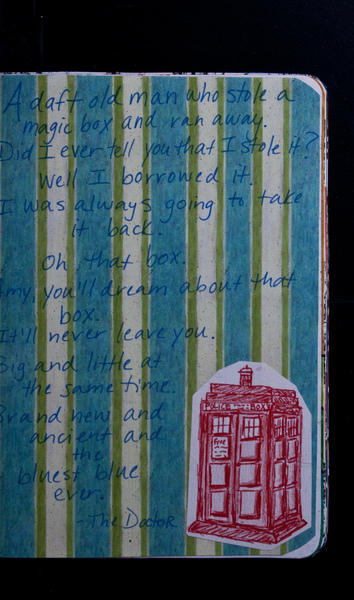 A daft old man who stole a
magic box and ran away.
Did I ever tell you that I stole it?
Well I borrowed it.
I was always going to take
it back.
Oh, that box.
Amy, you'll dream about that
box.
It'll never leave you.
Big and little at
the same time.
Brand new and
ancient and
the
bluest blue
ever.
- The Doctor
POLICE BOX
Free